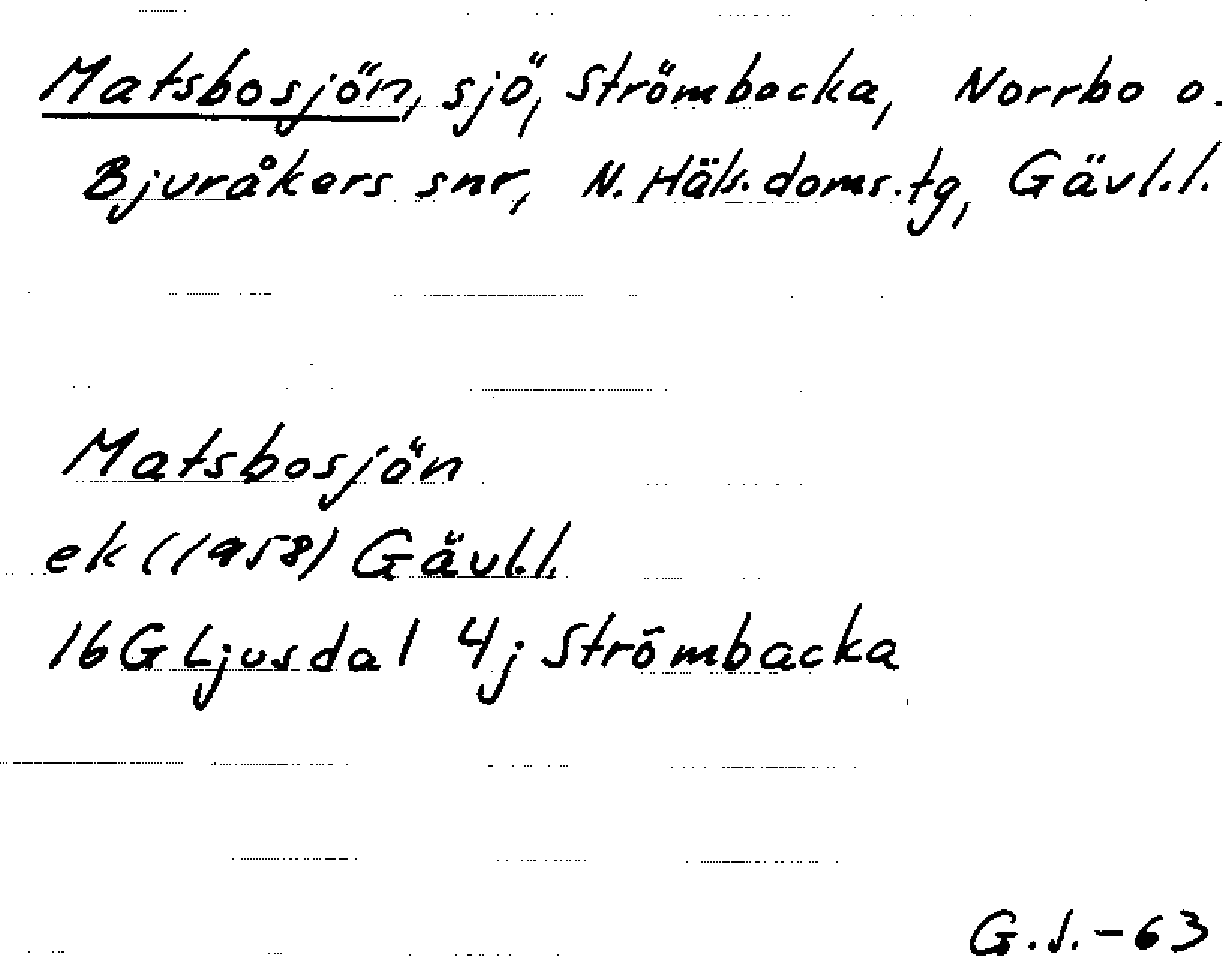 Matsbosjön, sjö, Strömbacka, Norrbo o.
Bjuråkers snr, N. Häls. doms. tg, Gävl.l.
Matsbosjön
ek (1958) Gävl.l.
16G Ljusdal 4j Strömbacka
G.S.-63